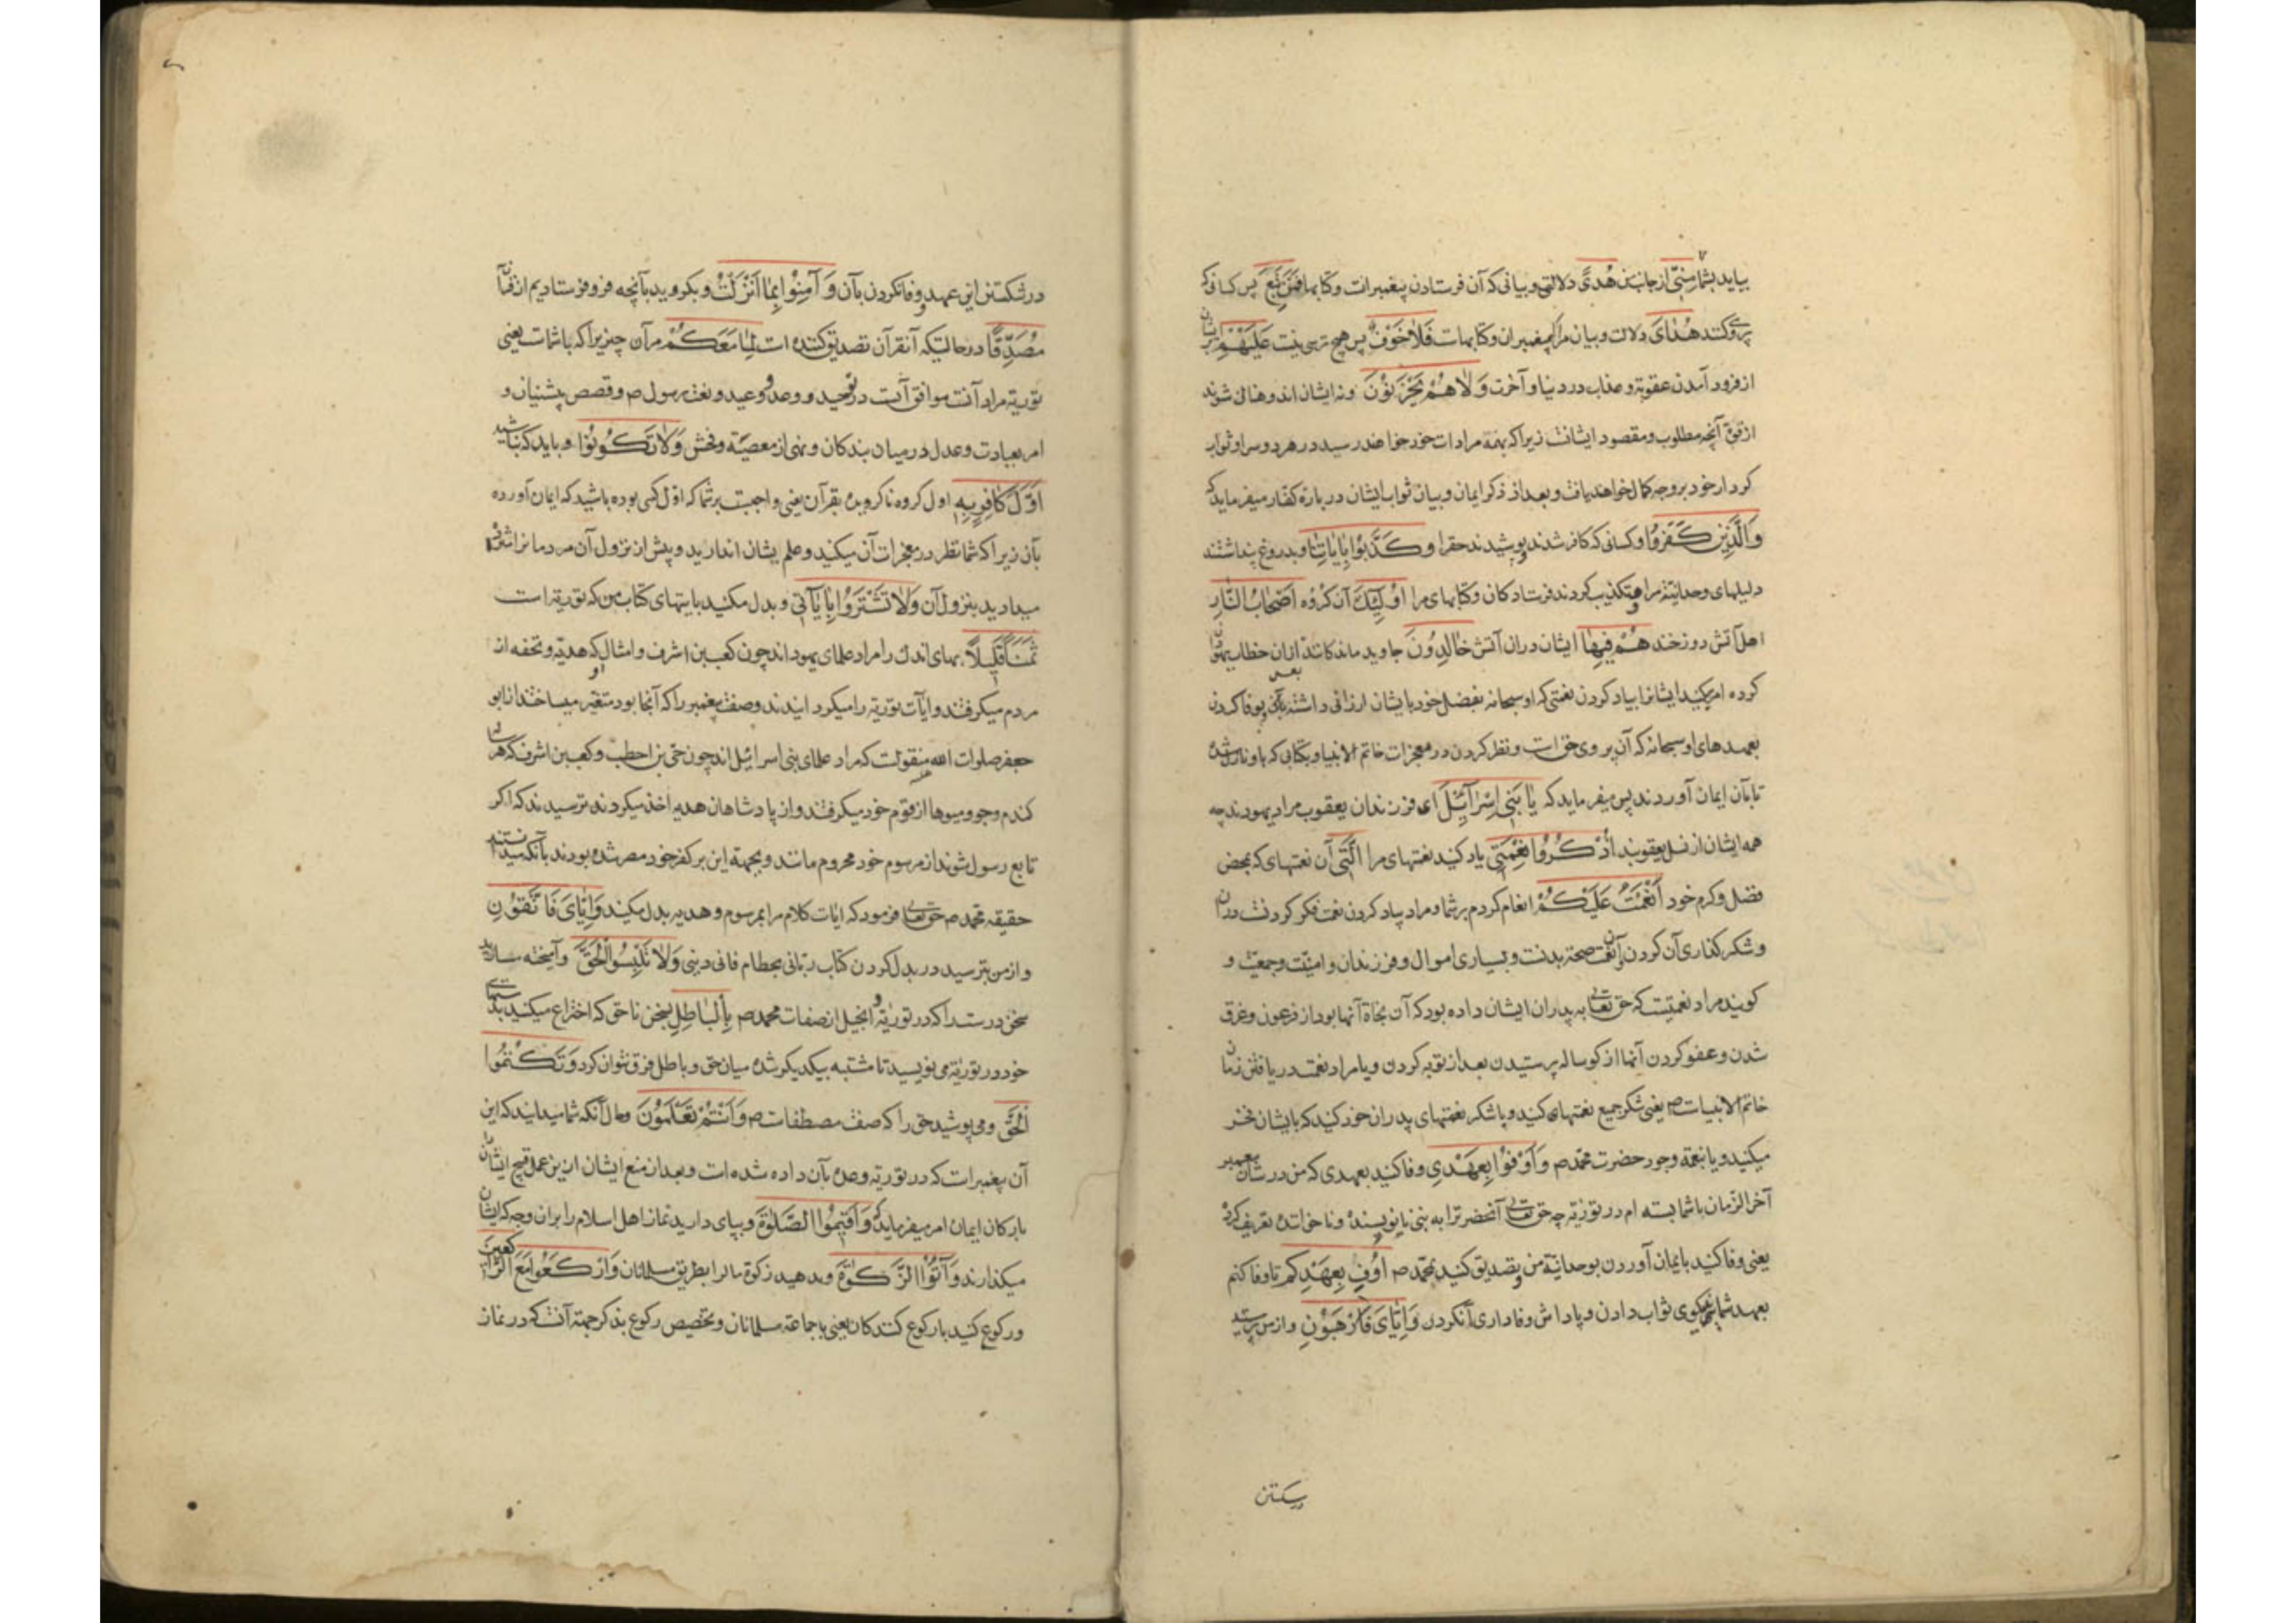 بیاید بشما مِنّی از جانب من هُدیً دلالتی و بیانی که آن فرستادن پیغمبرانست و کتابها فَمَن تَبِعَ پس کسانی که
پیروی کنند هُدٰایَ دلالت و بیان مرا که پیغمبران و کتابهاست فَلٰا خَوْفٌ پس هیچ ترسی نیست عَلَیْهِمْ بر ایشان
از فرود آمدن عقوبة و عذاب در دنیا و آخرت وَلٰا هُمْ یَحْزَنُوْنَ و نه ایشان اندوهناک شوند
از فوت آنچه مطلوب و مقصود ایشانست زیرا که بهمة مرادات خود خواهند رسید در هر دو سرا و ثواب
کردار خود بر وجه کمال خواهند یافت و بعد از ذکر ایمان و بیان ثواب ایشان در بارهٔ کفار میفرماید که
وَالَّذِیْنَ کَفَرُوْا و کسانی که کافر شدند و پوشیدند حقرا وَ کَذَّبُوْا بِاٰیٰاتِنٰا و بدروغ پنداشتند
دلیلهای وحدانیّة مرا و تکذیب کردند فرستادکان و کتابهای مرا اُوْلٰئِکَ آن کروه اَصْحٰابُ النّٰارِ
اهل آتش دوزخند هُمْ فِیهٰا ایشان در آن آتش خٰالِدُوْنَ جاوید ماندکانند بعد از آن خطاب بیهودان
کرده امر میکند ایشانرا بیاد کردن نعمتی که او سبحانه بفضل خود بایشان ارزانی داشته و بوفا کردن
بعهدهای او سبحانه که آن پیروی حق است و نظر کردن در معجزات خاتم الانبیا و بکتابی که باو نازل شده
تا بآن ایمان آوردند پس میفرماید که یٰا بَنِی اِسْرٰآئِیْلَ ای فرزندان یعقوب مراد یهودند چه
همه ایشان از نسل یعقوبند اُذْکُرُوْا نِعْمَتِی یاد کنید نعمتهای مرا الَّتِی آن نعمتهای که بمحض
فضل و کرم خود اَنْعَمْتُ عَلَیْکُمْ انعام کردم بر شما و مراد بیاد کردن نعمت فکر کردنست در آن
و شکر کذاری آن کردن و آن نعمت صحة بدنست و بسیاری اموال و فرزندان و امنیّت و جمعیّت و
کویند مراد نعمتیست که حق تعالی به پدران ایشان داده بود که آن نجاة آنها بود از فرعون و غرق
شدن و عفو کردن آنها از کوساله پرستیدن بعد از توبه کردن و یا مراد نعمت دریافتن زمان
خاتم الانبیاست ص یعنی شکر جمیع نعمتهای کنید و یا شکر نعمتهای پدران خود کنید که بایشان فخر
میکنید و یا نعمة وجود حضرت محمّد ص وَ اَوْفُوْا بِعَهْدِی وفا کنید بعهدی که من در شان پیغمبر
آخر الزّمان با شما بسته ام در توریة چه حق تعالی آنحضرترا به بنی نانویسنده و ناخوانده تعریف کرد
یعنی وفا کنید بایمان آوردن بوحدانیّة من و تصدیق کنید بمحمّد ص اُوْفِ بِعَهْدِکُمْ تا وفا کنم
بعهد شما بنیکوی ثواب دادن و پاداش وفاداری آنکردن وَ اِیّٰایَ فَارْهَبُوْنِ و از من بترسید
در شکستن این عهد و وفا نکردن بآن وَ آمِنُوْا بِمٰا اَنْزَلْتُ و بکروید بآنچه فرو فرستادیم از قرآن
مُصَدِّقًا در حالتیکه آنقرآن تصدیق کننده است لِمٰا مَعَکُمْ مر آن چیزیرا که با شماست یعنی
توریة مراد آنست موافق آنست در توحید و وعد و وعید و نعت رسول ص و قصص پیشینیان و
امر بعبادت و عدل در میان بندکان و نهی از معصیّة و فحش وَلٰا تَکُوْنُوْا و باید که نباشید
اَوَّلَ کٰافِرٍ بِهِ اول کروه ناکرویده بقرآن یعنی واجبست بر شما که اوّل کسی بوده باشید که ایمان آورده
بآن زیرا که شما نظر در معجزات آن میکنید و علم بشان آن دارید و پیش از نزول آن مردمانرا بشارت
میدادید بنزول آن وَلٰا تَشْتَرُوْا بِاٰیٰاتِی و بدل مکنید بایتهای کتاب من که توریة است
ثَمَنًا قَلِیلًا بهای اندک را مراد علمای یهود اند چون کعب بن اشرف و امثال او که هدیّه و تحفه از
مردم میکرفتند و ایات توریة را میکردانیدند و وصف پیغمبر را که آنجا بود متغیر میساختند از ابو
جعفر صلوات الله علیه منقولست که مراد علمای بنی اسرائیل اند چون حی بن احطب و کعب بن اشرف که هر سال
کندم و جو و میوها از قوم خود میکرفتند و از پادشاهان هدیه اخذ میکردند ترسیدند که اکر
تابع رسول شوند از مرسوم خود محروم مانند و بجهة این بر کفر خود مصر شده بودند با آنکه میدانستند
حقیقه محمّد ص حق تعالی فرمود که ایات کلام مرا بمرسوم و هدیه بدل مکنید وَ اِیّٰایَ فَاتَّقُوْنِ
و از من بترسید در بدل کردن کتاب ربّانی بحطام فانی دینی وَلٰا تَلْبِسُوا الْحَقَّ و آمیخته سازید
سخن درست را که در توریة و انجیل از صفات محمد ص بِالْبٰاطِلِ بسخن ناحق که اختراع میکنید بدستهای
خود و در توریة می نویسید تا مشتبه بیکدیکر شده میان حق و باطل فرق نتوان کرد وَ تَکْتُمُوا
الْحَقَّ و می پوشید حق را که صفت مصطفاست ص وَ اَنْتُمْ تَعْلَمُوْنَ و حال آنکه شما میدانید که این
آن پیغمبر است که در توریة وعده بآن داده شده است و بعد از منع ایشان ازین عمل قبیح ایشانرا
بارکان ایمان امر میفرماید که وَ اَقِیْمُوا الصَّلٰوةَ و بپای دارید نماز اهل اسلام را بران وجه که ایشان
میکذارند وَ آتُوْا الزَّکٰوةَ و بدهید زکوة مالرا بطریق مسلمانان وَ ارْکَعُوْا مَعَ الرّٰاکِعِیْنَ
و رکوع کنید با رکوع کنندکان یعنی با جماعة مسلمانان و تخصیص رکوع بذکر جهة آنست که در نماز